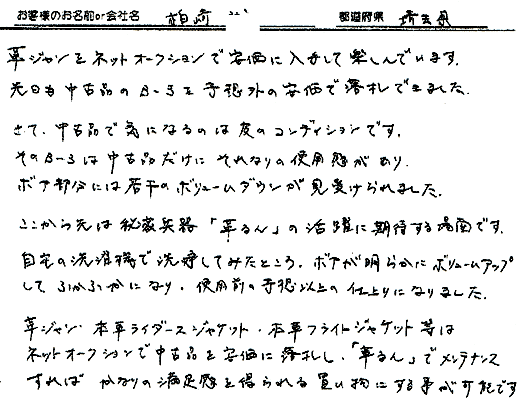 お客様のお名前or会社名 柏崎 都道府県 埼玉県
革ジャンをネットオークションで安価に入手して楽しんでいます。
先日も中古品のB-3を予想外の安価で落札できました。
さて、中古品で気になるのは皮のコンディションです。
そのB-3は中古品だけにそれなりの使用感があり、
ボア部分には若干のボリュームダウンが見受けられました。
ここから先は秘密兵器「革るん」の活躍に期待する場面です。
自宅の洗濯機で洗浄してみたところ、ボアが明らかにボリュームアップ
してふかふかになり、使用前の予想以上の仕上りになりました。
革ジャン・本革ライダースジャケット・本革フライトジャケット等は
ネットオークションで中古品を安価に落札し、「革るん」でメンテナンス
すれば かなりの満足感を得られる買い物にする事が可能です